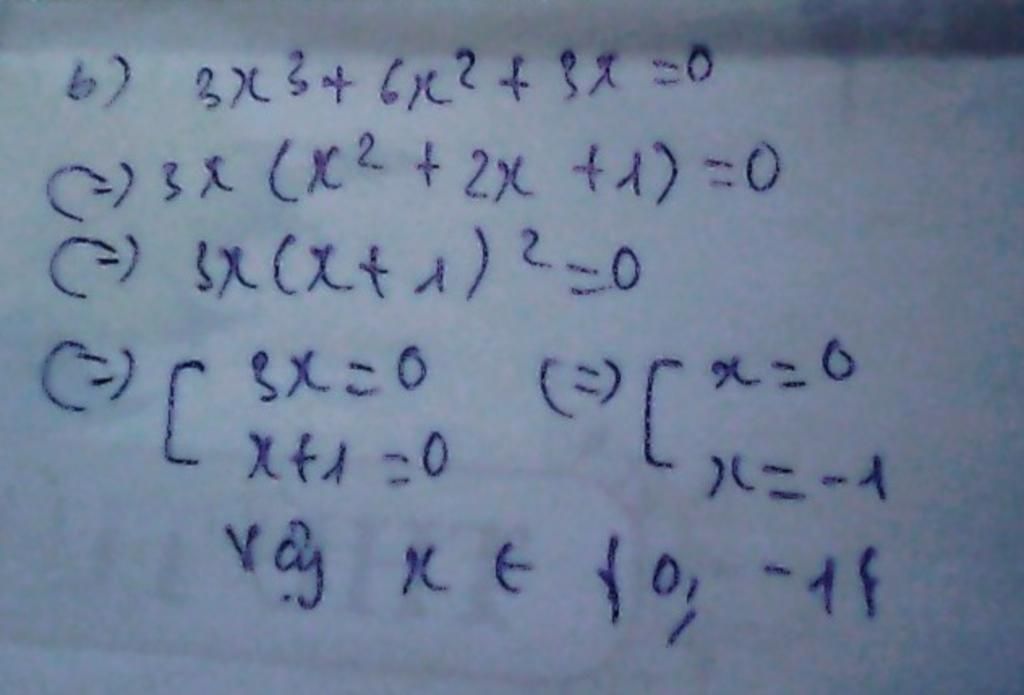 b) 3x³ + 6x² + 3x = 0
(=) 3x (x² + 2x + 1) = 0
(=) 3x(x + 1)² = 0
(=) [ 3x = 0 (=) [ x = 0
x + 1 = 0 x = -1
Vậy x ∈ {0; -1}